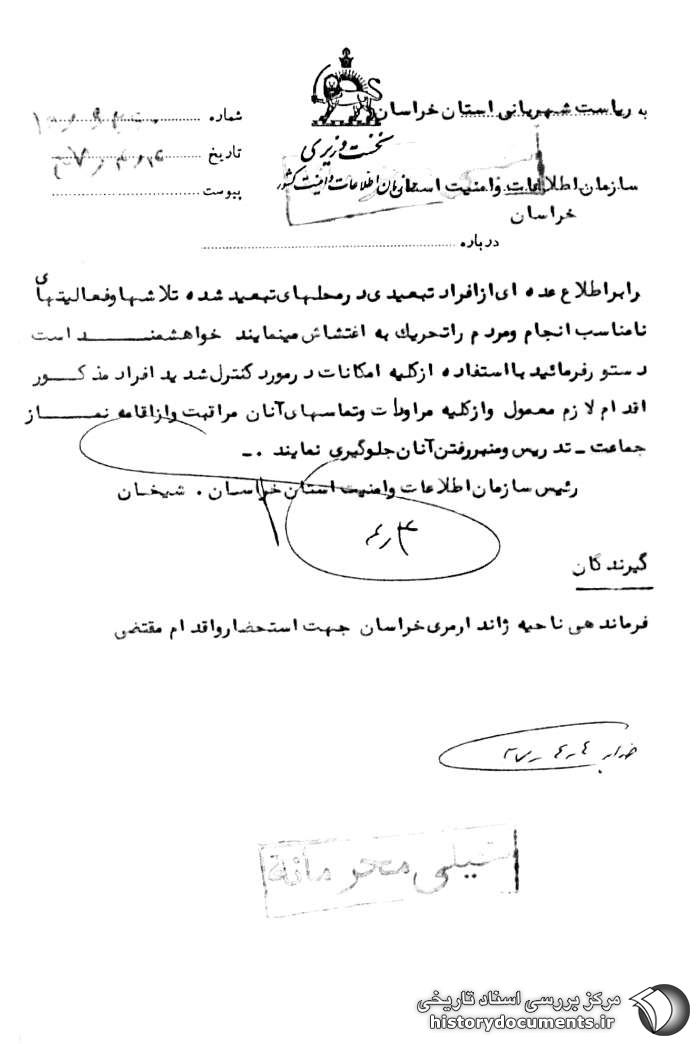 به ریاست شهربانی استان خراسان
شماره
نخست وزیری
تاریخ
سازمان اطلاعات وامنیت استان
سازمان اطلاعات و امنیت کشور
پیوست
خراسان
درباره
رابر اطلاع عده ای از افراد تبعیدی در محلهای تبعید شده تلاشها وفعالیتهای
نامناسب انجام ومردم راتحریك به اغتشاش مینمایند خواهشمنـــــد است
دستور فرمائید بااستفاده ازکلیه امکانات درمورد کنترل شدید افراد مذکــور
اقدام لازم معمول وازکلیه مراودات وتماسهای آنان مراقبت وازاقامه نمـــاز
جماعت ـ تدریس ومنبررفتن آنان جلوگیری نمایند .ـ
رئیس سازمان اطلاعات وامنیت استان خراسـان . شیخـان
۴ر۴
گیرندگان
فرماندهی ناحیه ژاندارمری خراسان جهت استحضار واقدام مقتضی
۴ر۴ر۳۷
خیلی محرمانه
مرکز بررسی اسناد تاریخی
historydocuments.ir